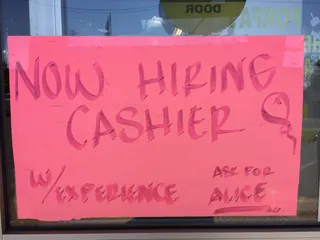 DOOR
NOW HIRING
CASHIER
W/EXPERIENCE
ASK FOR
ALICE